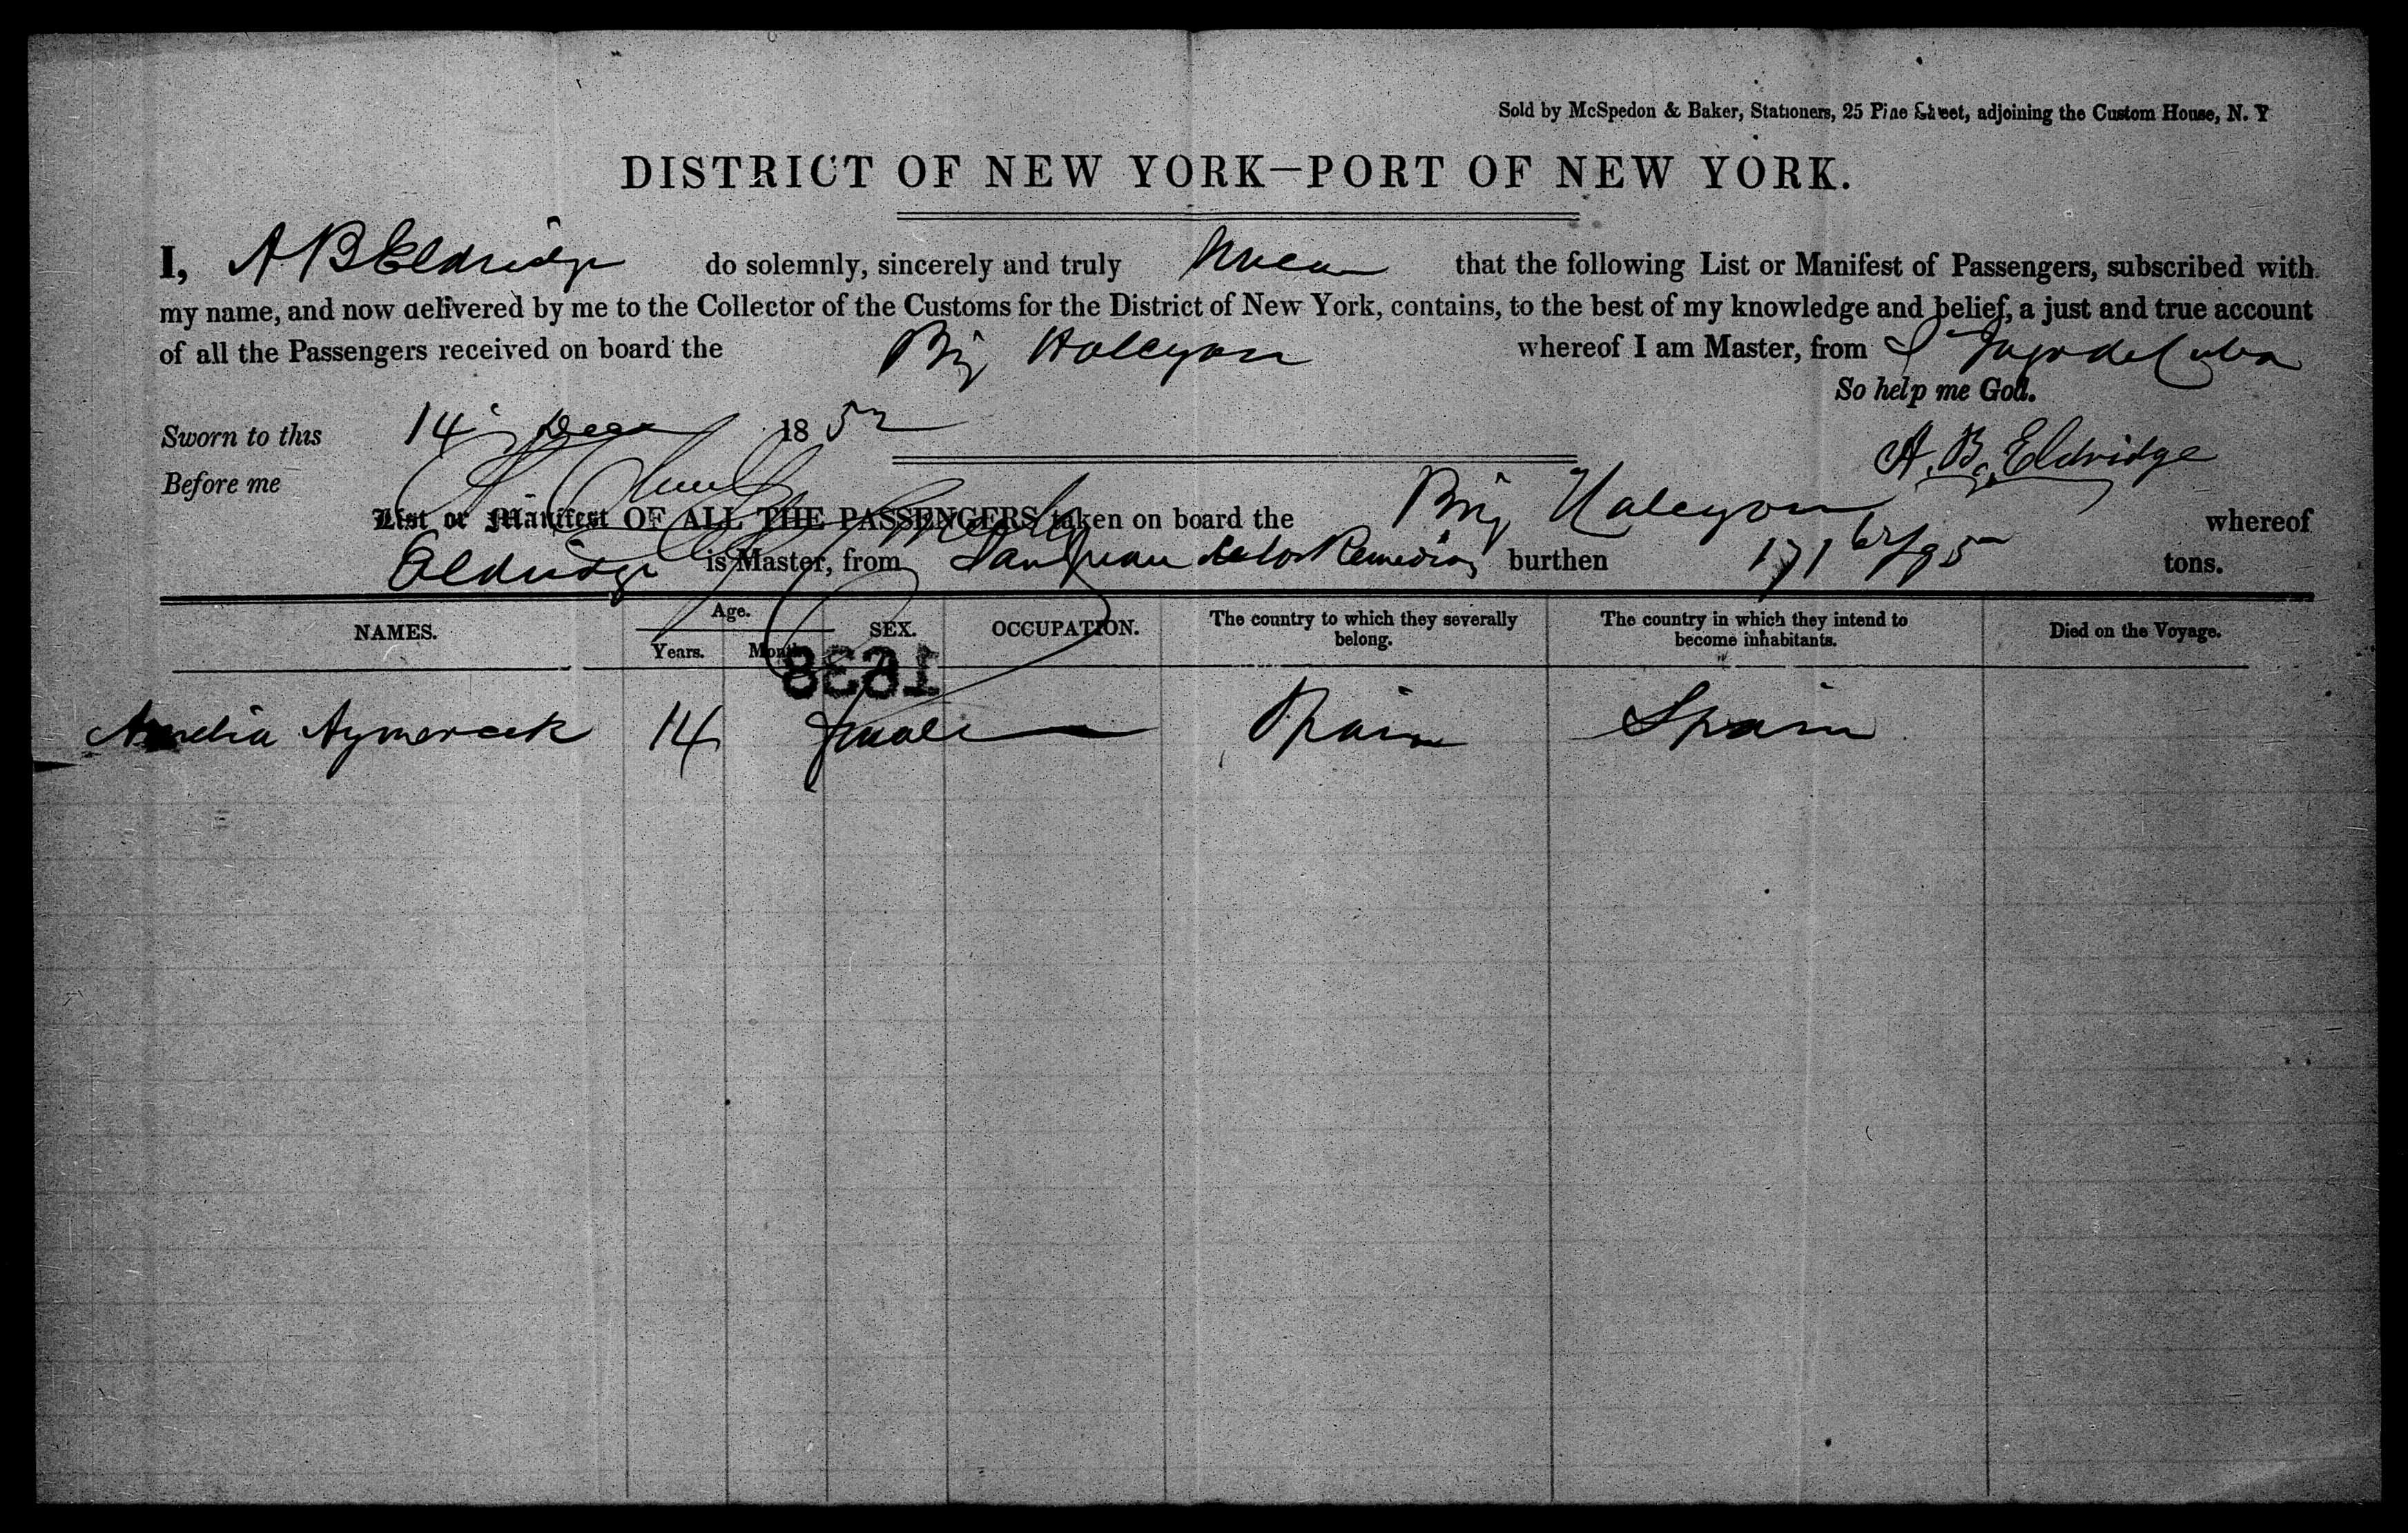 Sold by McSpedon & Baker, Stationers, 25 Pine Street, adjoining the Custom House, N. Y
DISTRICT OF NEW YORK—PORT OF NEW YORK.
I, A B Eldridge do solemnly, sincerely and truly swear that the following List or Manifest of Passengers, subscribed with
my name, and now delivered by me to the Collector of the Customs for the District of New York, contains, to the best of my knowledge and belief, a just and true account
of all the Passengers received on board the Brig Halcyon whereof I am Master, from de Cuba
So help me God.
Sworn to this 14 Dec 1852
A. B. Eldridge
Before me
List or Manifest OF ALL THE PASSENGERS taken on board the Brig Halcyon whereof
Eldridge is Master, from San Juan de los Remedios burthen 171 62/95 tons.
NAMES. Age. Years. Months. SEX. OCCUPATION. The country to which they severally belong. The country in which they intend to become inhabitants. Died on the Voyage.
1638
Amelia 14 female Spain Spain